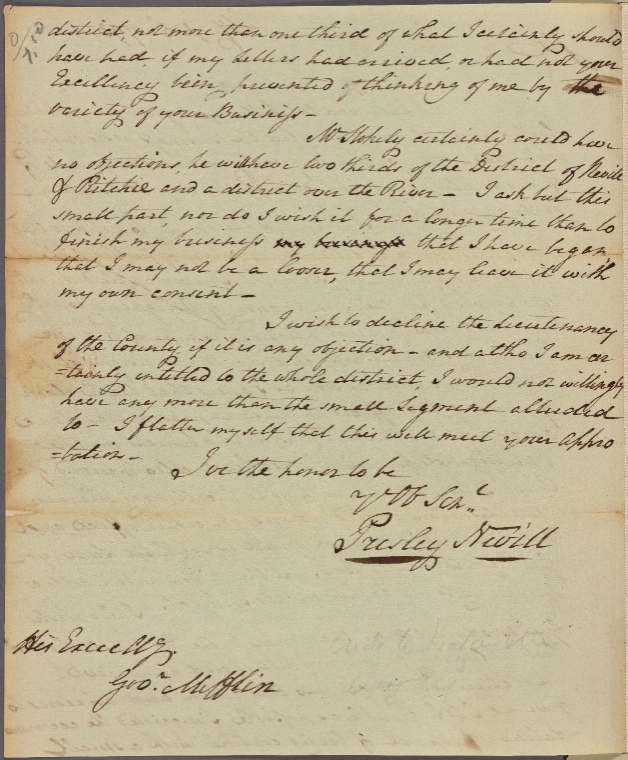 district, not more than one third of what I certainly should
have had, if my letters had arrived or had not your
Excellency been prevented of thinking of me by the
variety of your Business -
Mr Stokely certainly could have
no objections, he will have two thirds of the District of Nevill
& Ritchie and a district over the River - I ask but this
small part, nor do I wish it for a longer time than to
finish my business that I have began
that I may not be a looser, that I may leave it with
my own consent -
I wish to decline the Lieutenancy
of the County if it is any objection - and altho I am cer
=tainly intitled to the whole district, I would not willingly
have any more than the small Segment alluded
to - I flatter myself that this will meet your appro
=bation -
I've the honor to be
Yr Ob Servt
Presley Nevill
His Excellcy.
Govr. Mifflin